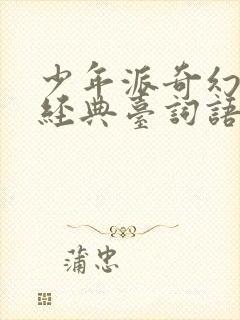 少年派奇幻
經典臺詞語
蒲忠